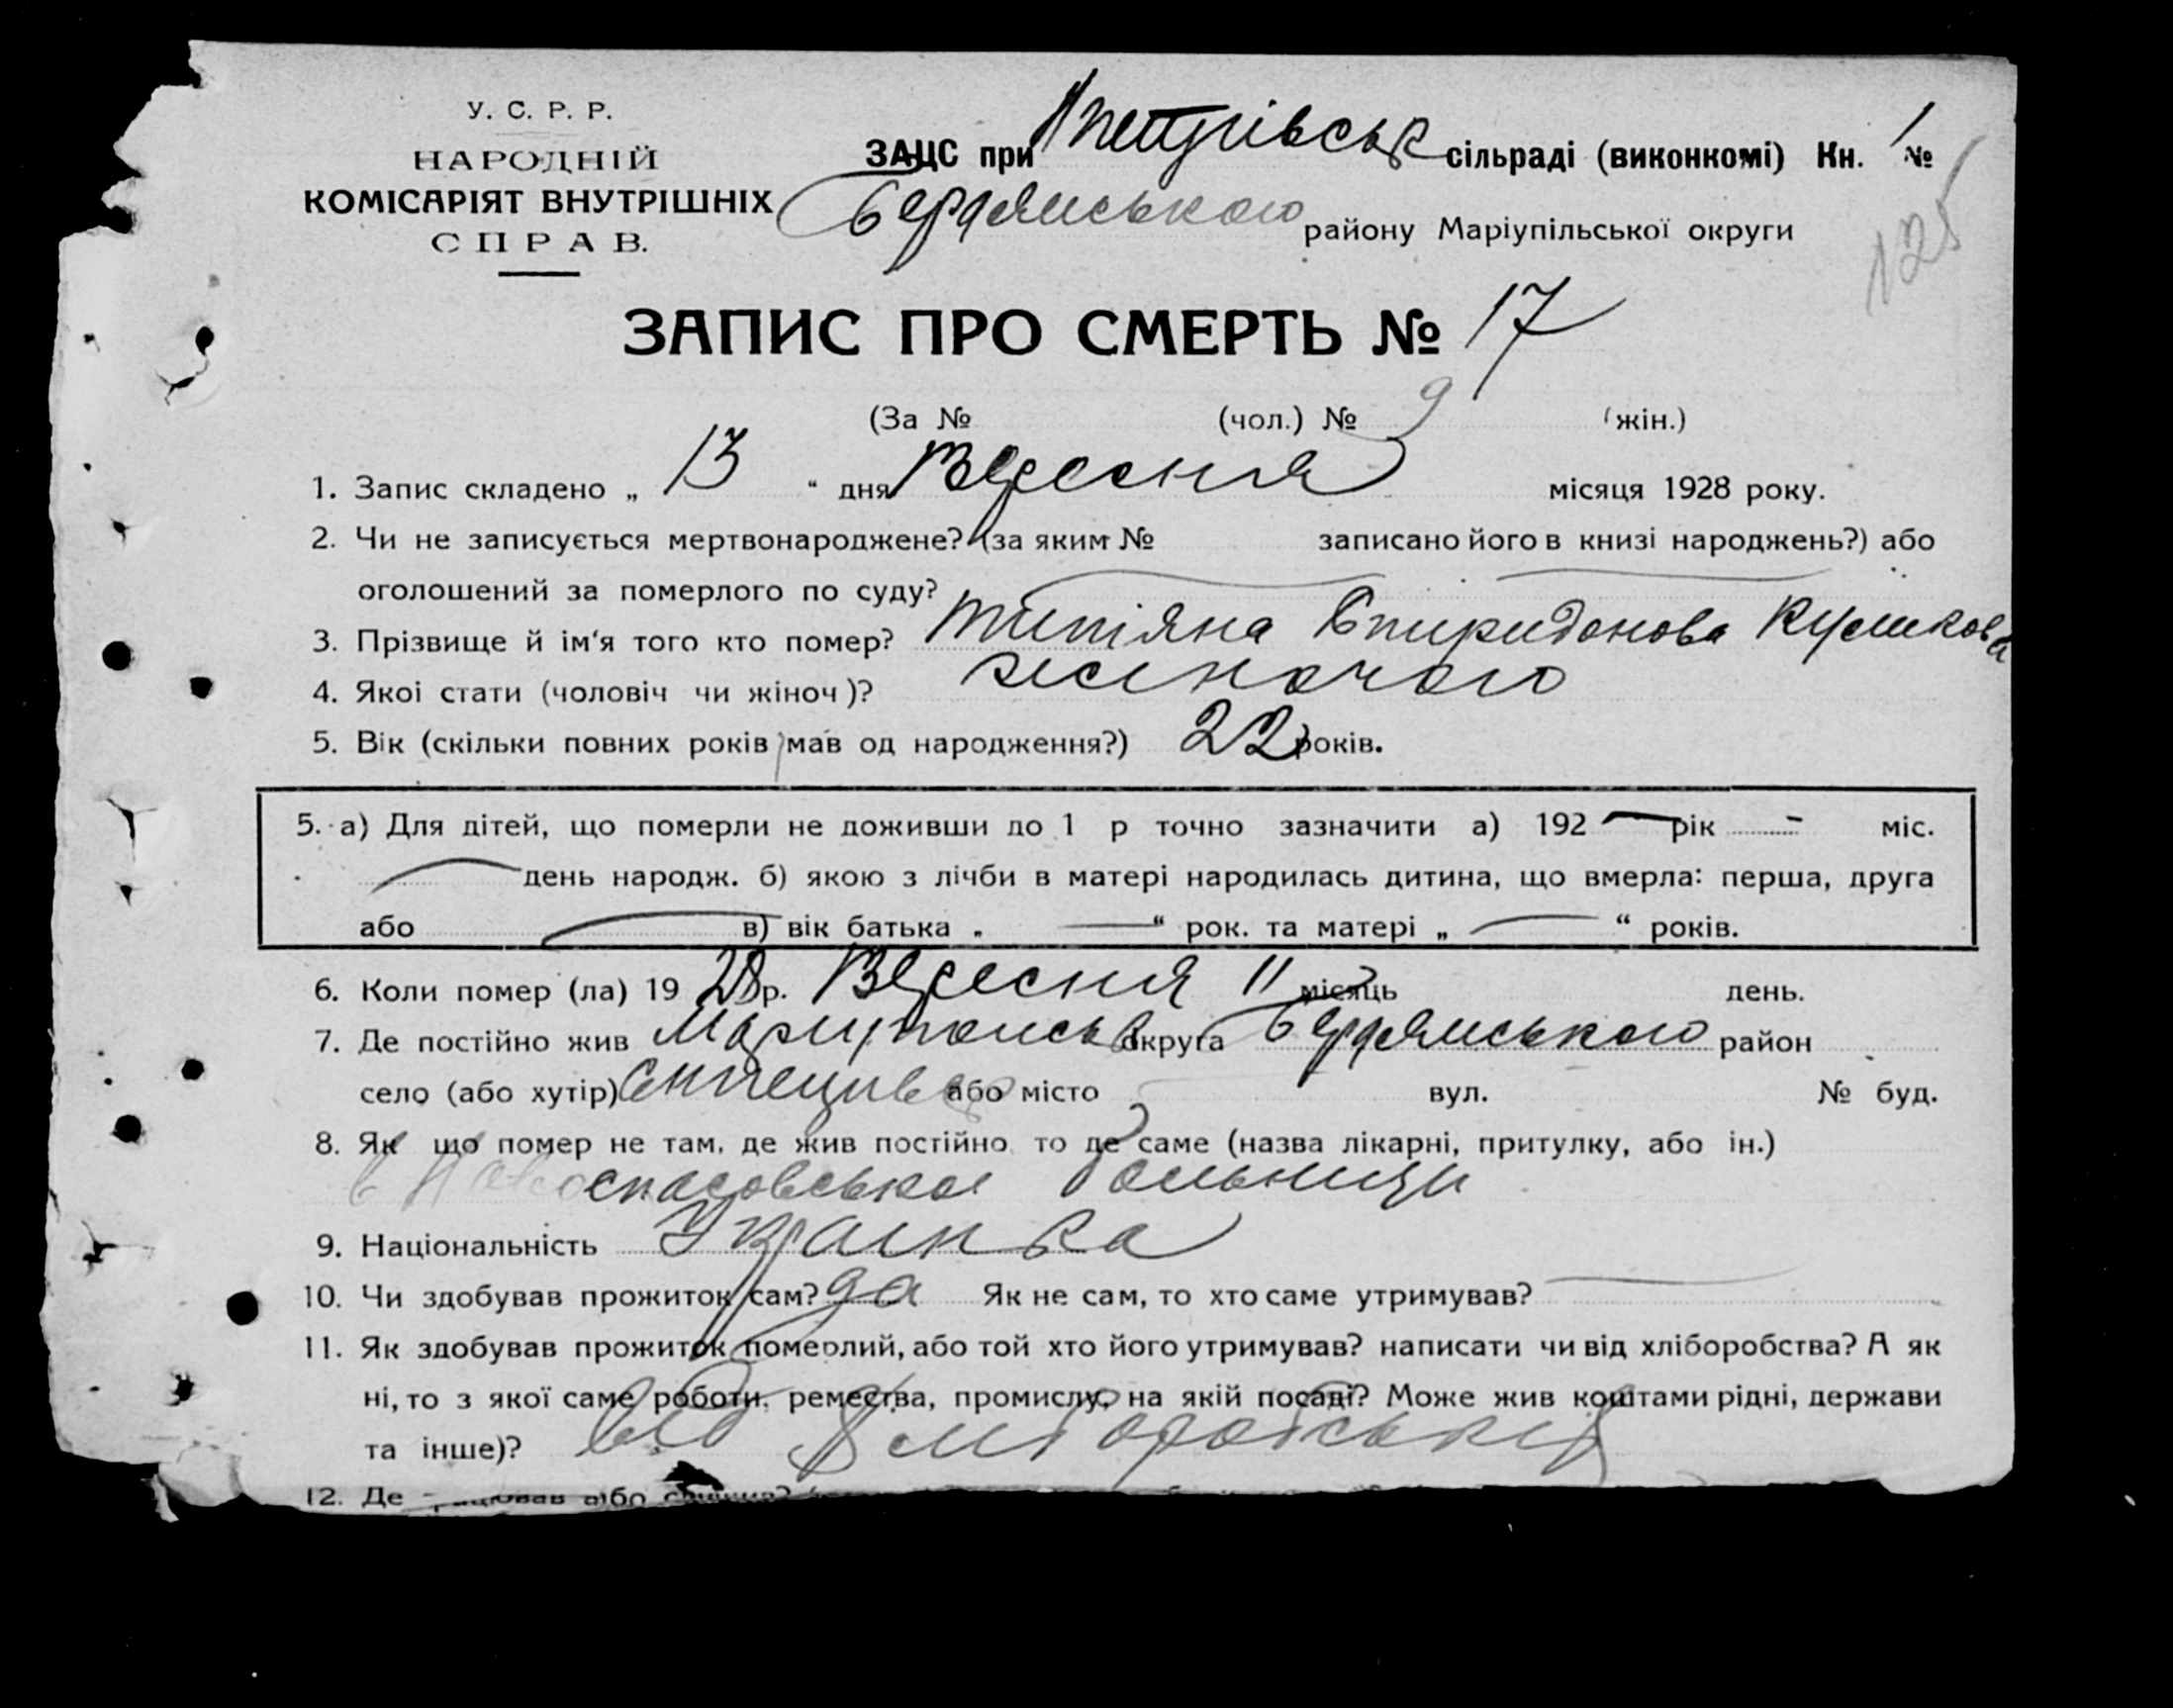 У. С. Р. Р.
НАРОДНІЙ
КОМІСАРІЯТ ВНУТРІШНІХ
СПРАВ.
ЗАЦС при Петрівськ сільраді (виконкомі) Кн. 1 №
Бердянського району Маріупільської округи
125
ЗАПИС ПРО СМЕРТЬ № 17
(За № (чол.) № 9 (жін.)
1. Запис складено „ 13 “ дня Вересня місяця 1928 року.
2. Чи не записується мертвонароджене? (за яким № записано його в книзі народжень?) або
оголошений за померлого по суду?
3. Прізвище й ім‘я того кто помер? Титіяна Спиридонова
4. Якоі стати (чоловіч чи жіноч)? жіночого
5. Вік (скільки повних років мав од народження?) 22 років.
5. а) Для дітей, що померли не доживши до 1 р точно зазначити а) 192 — рік - міс.
— день народж. б) якою з лічби в матері народилась дитина, що вмерла: перша, друга
або — в) вік батька „ — “ рок. та матері „ — “ років.
6. Коли помер (ла) 19 28 р. Вересня 11 місяць день.
7. Де постійно жив округа Бердянського район
село (або хутір) або місто вул. № буд.
8. Як що помер не там, де жив постійно то де саме (назва лікарні, притулку, або ін.)
в Новоспасовської больниці
9. Національність Украинка
10. Чи здобував прожиток сам? да Як не сам, то хто саме утримував? —
11. Як здобував прожиток померлий, або той хто його утримував? написати чи від хліборобства? А як
ні, то з якої саме роботи, ремества, промислу, на якій посаді? Може жив коштами рідні, держави
та інше)? від
12. Де або